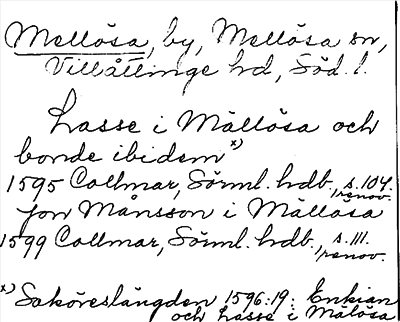 Mellösa, by, Mellösa sn,
Villåttinge hd, Söd. l.
Lasse i Mällösa och
bonde ibidem x)
1595 Collmar, Sörml. hdb., s. 104. renov.
Jon Månsson i Mällösa
1599 Collmar, Sörml. hdb., s. 111. renov.
x) Saköreslängden 1596:19: Enkian
och Lasse i Mälösa